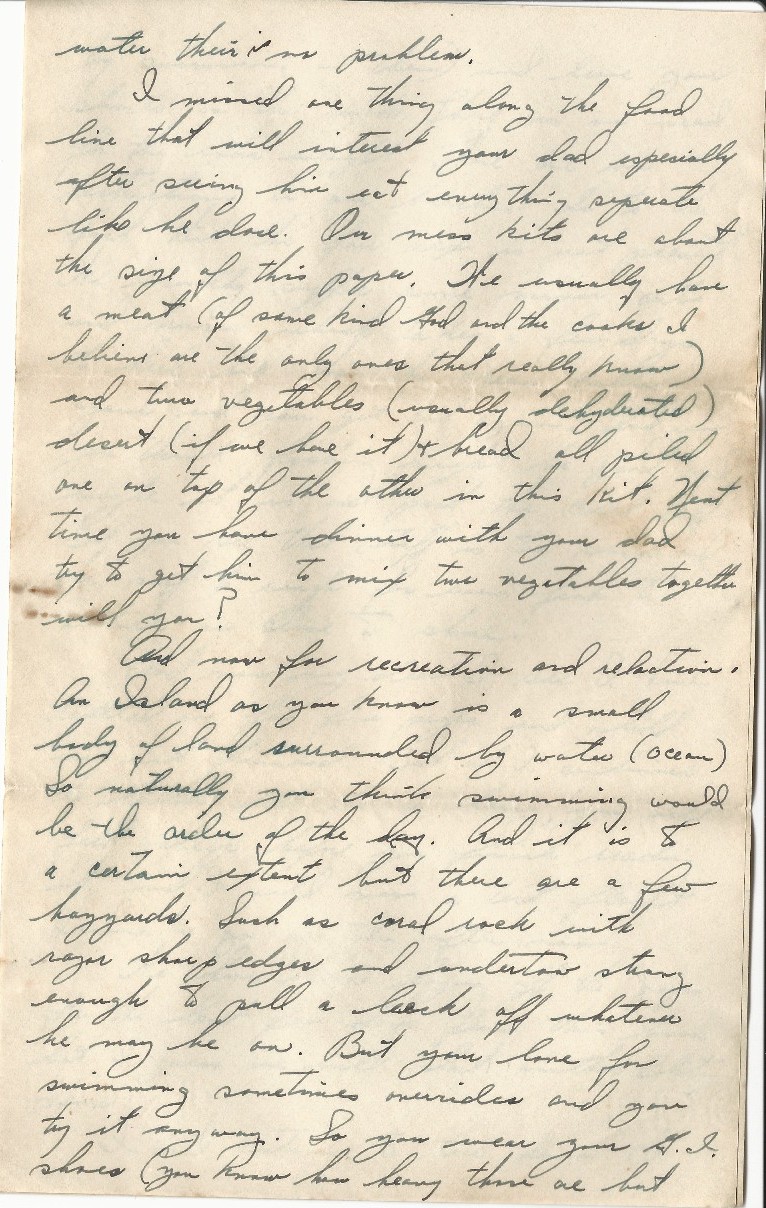 water their is no problem.
I missed one thing along the food
line that will interest your dad especially
after seeing him eat everything seperate
like he dose. Our mess kits are about
the size of this paper. We usually have
a meat (of some kind God and the cooks I
believe are the only ones that really know)
and two vegetables (usually dehydrated)
desert (if we have it) + bread all piled
one on top of the other in this kit. Next
time you have dinner with your dad
try to get him to mix two vegetables together
will you?
And now for recreation and relaction.
An Island as you know is a small
body of land surrounded by water (ocean)
So naturally you think swimming would
be the order of the day. And it is to
a certain extent but there are a few
hazzards. Such as coral rock with
razor sharp edges and undertow strong
enough to pull a leech off whatever
he may be on. But your love for
swimming sometimes overrides and you
try it anyway. So you wear your G.I.
shoes (you know how heavy those are but